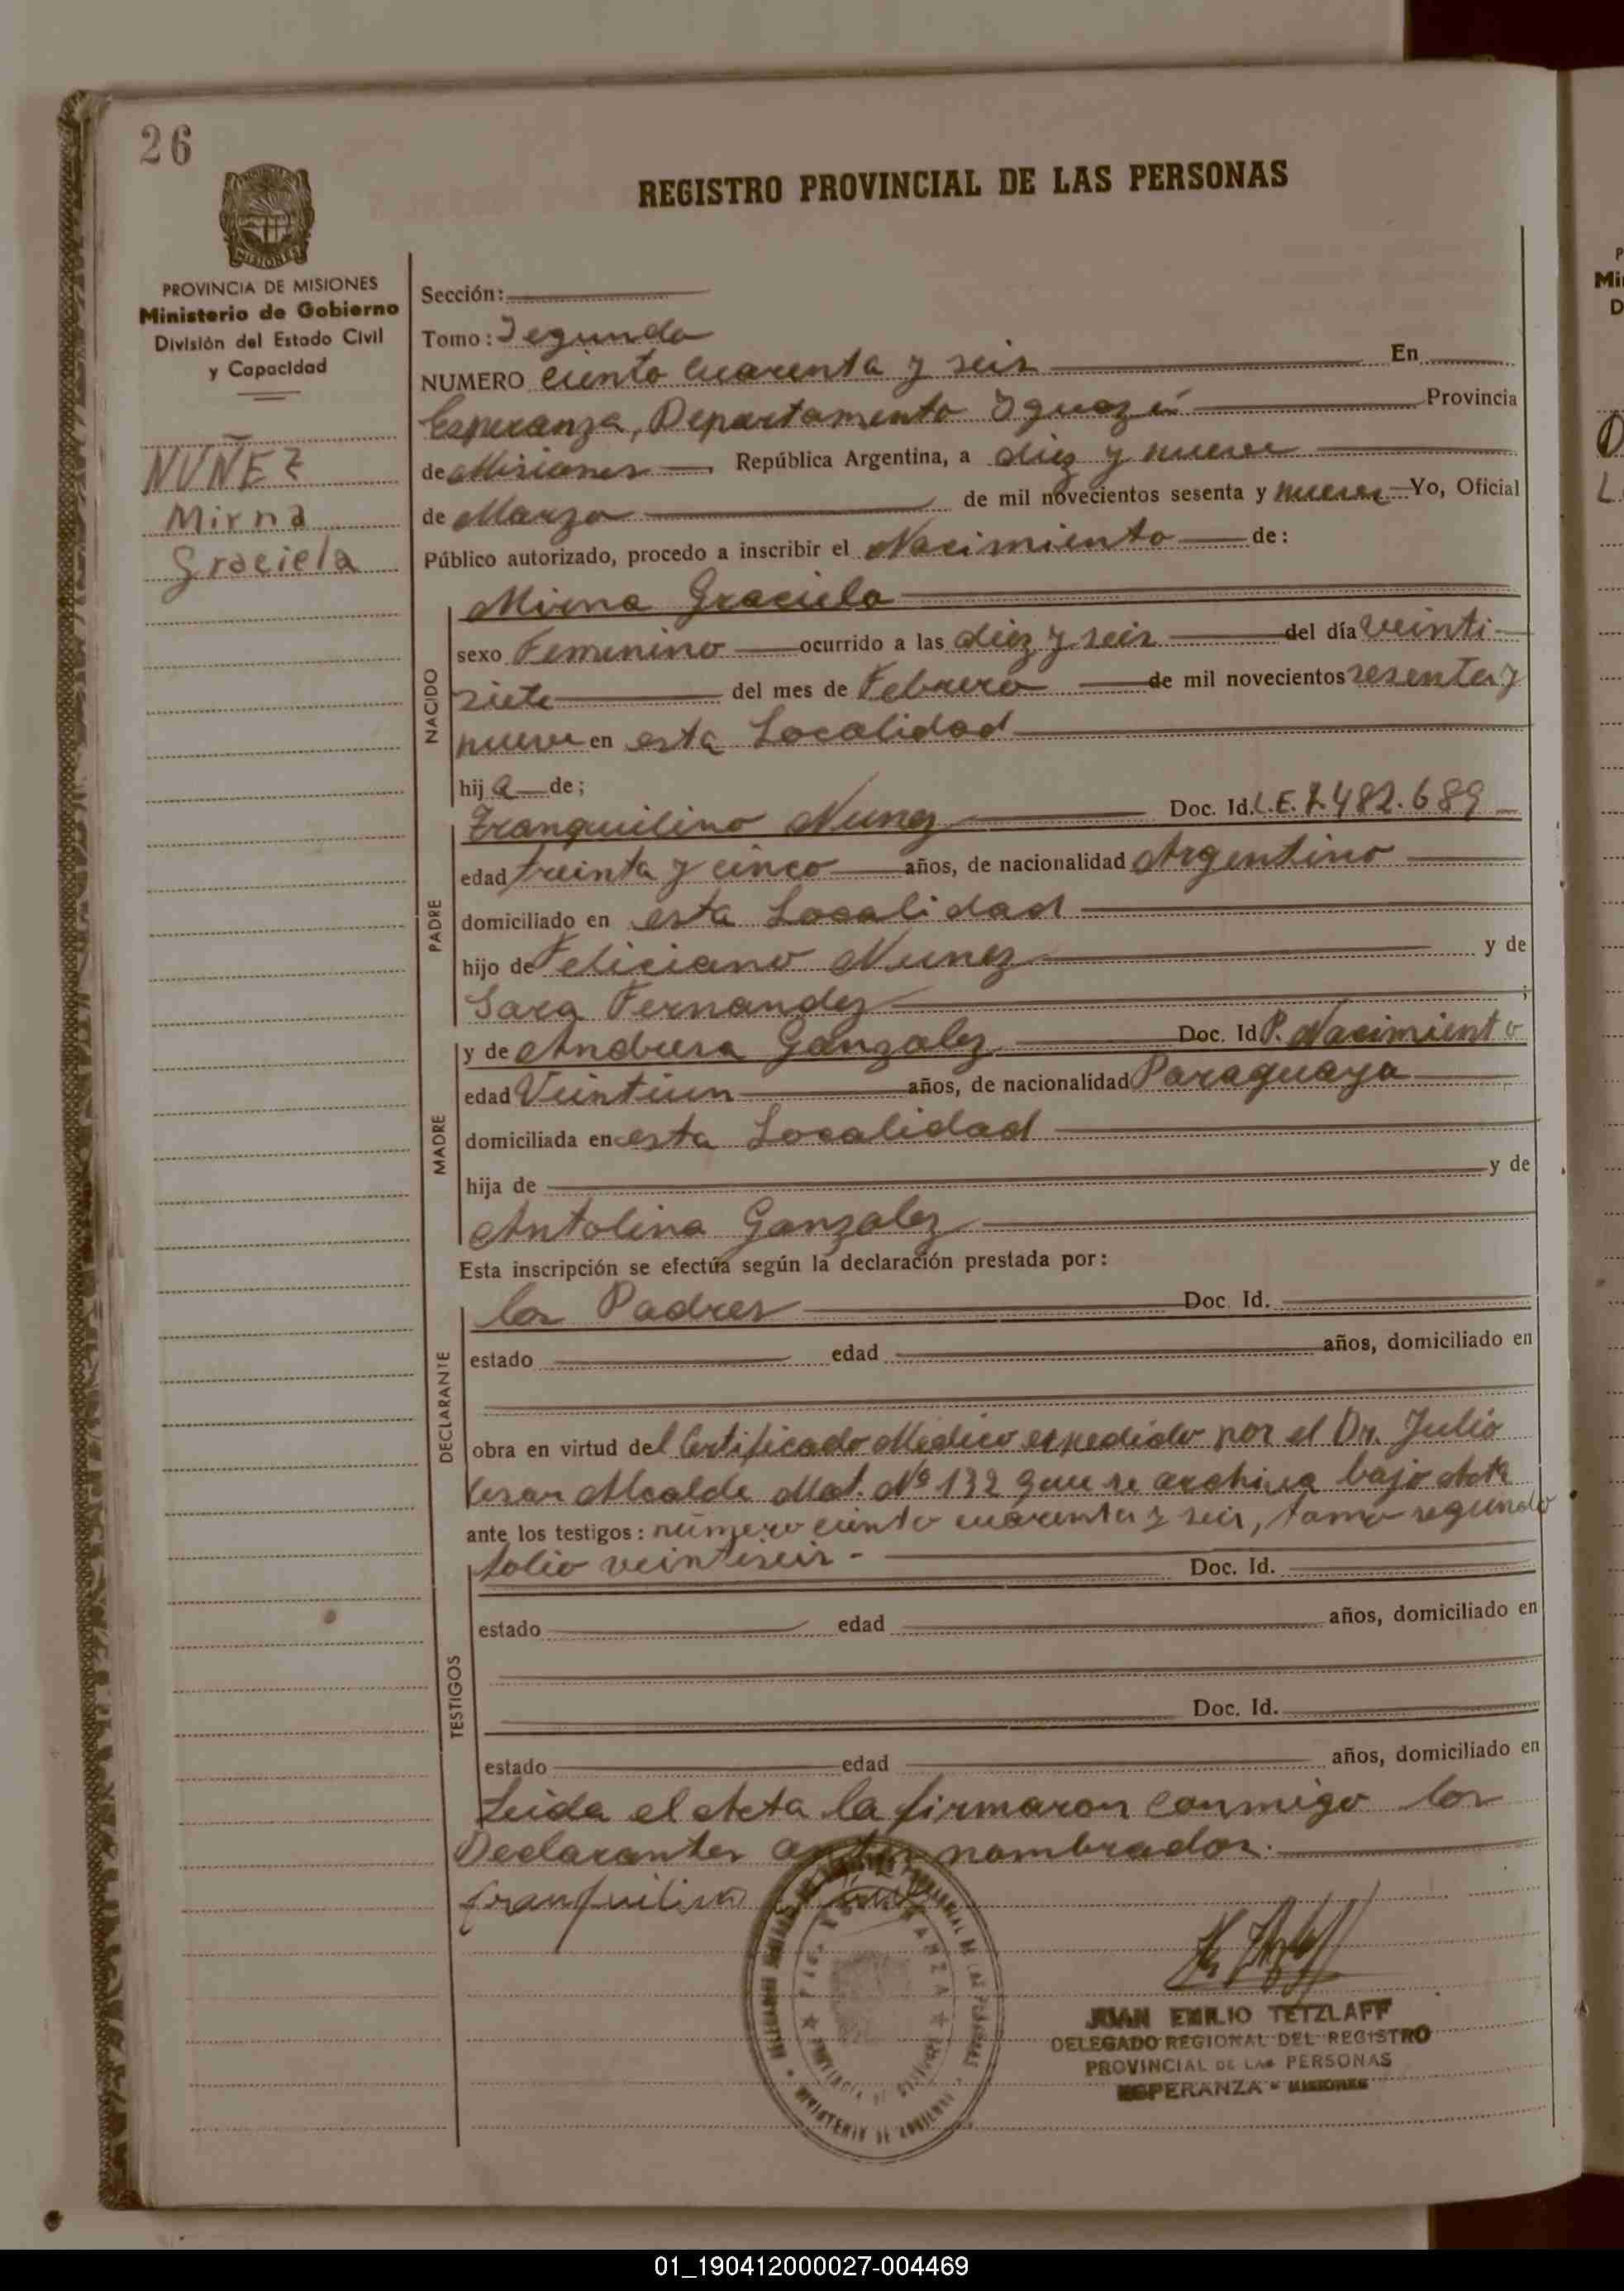 26
REGISTRO PROVINCIAL DE LAS PERSONAS
MISIONES
PROVINCIA DE MISIONES
Ministerio de Gobierno
División del Estado Civil
y Capacidad
NUÑEZ
Mirna
Graciela
Sección:
Tomo: Segundo
NUMERO Ciento Cuarenta y seis En
Esperanza, Departamento Iguazú Provincia
de Misiones República Argentina, a diez y nueve
de Marzo de mil novecientos sesenta y nueve Yo, Oficial
Público autorizado, procedo a inscribir el Nacimiento de:
NACIDO
Mirna Graciela
sexo Femenino ocurrido a las diez y seis del día veinti-
siete del mes de Febrero de mil novecientos sesenta y
nueve en esta Localidad
hij a de;
PADRE
Tranquilino Nunez Doc. Id. L.E. 7.482.689
edad treinta y cinco años, de nacionalidad Argentino
domiciliado en esta Localidad
hijo de Feliciano Nunez y de
Sara Fernandez ;
MADRE
y de Andresa Gonzalez Doc. Id. P. Nacimiento
edad Veintiun años, de nacionalidad Paraguaya
domiciliada en esta Localidad
hija de y de
Antolina Gonzalez
Esta inscripción se efectúa según la declaración prestada por:
DECLARANTE
los Padres Doc. Id.
estado edad años, domiciliado en
obra en virtud del Certificado Médico expedido por el Dr. Julio
Cesar Alcalde Mat. Nº 132 que se archiva bajo Acta
ante los testigos: número ciento cuarenta y seis, tomo segundo
folio veintiseis - Doc. Id.
TESTIGOS
estado edad años, domiciliado en
Doc. Id.
estado edad años, domiciliado en
Leida el Acta la firmaron conmigo los
Declarantes antes nombrados.
Tranquilino
JUAN EMILIO TETZLAFF
DELEGADO REGIONAL DEL REGISTRO
PROVINCIAL DE LAS PERSONAS
ESPERANZA - MISIONES
01_190412000027-004469